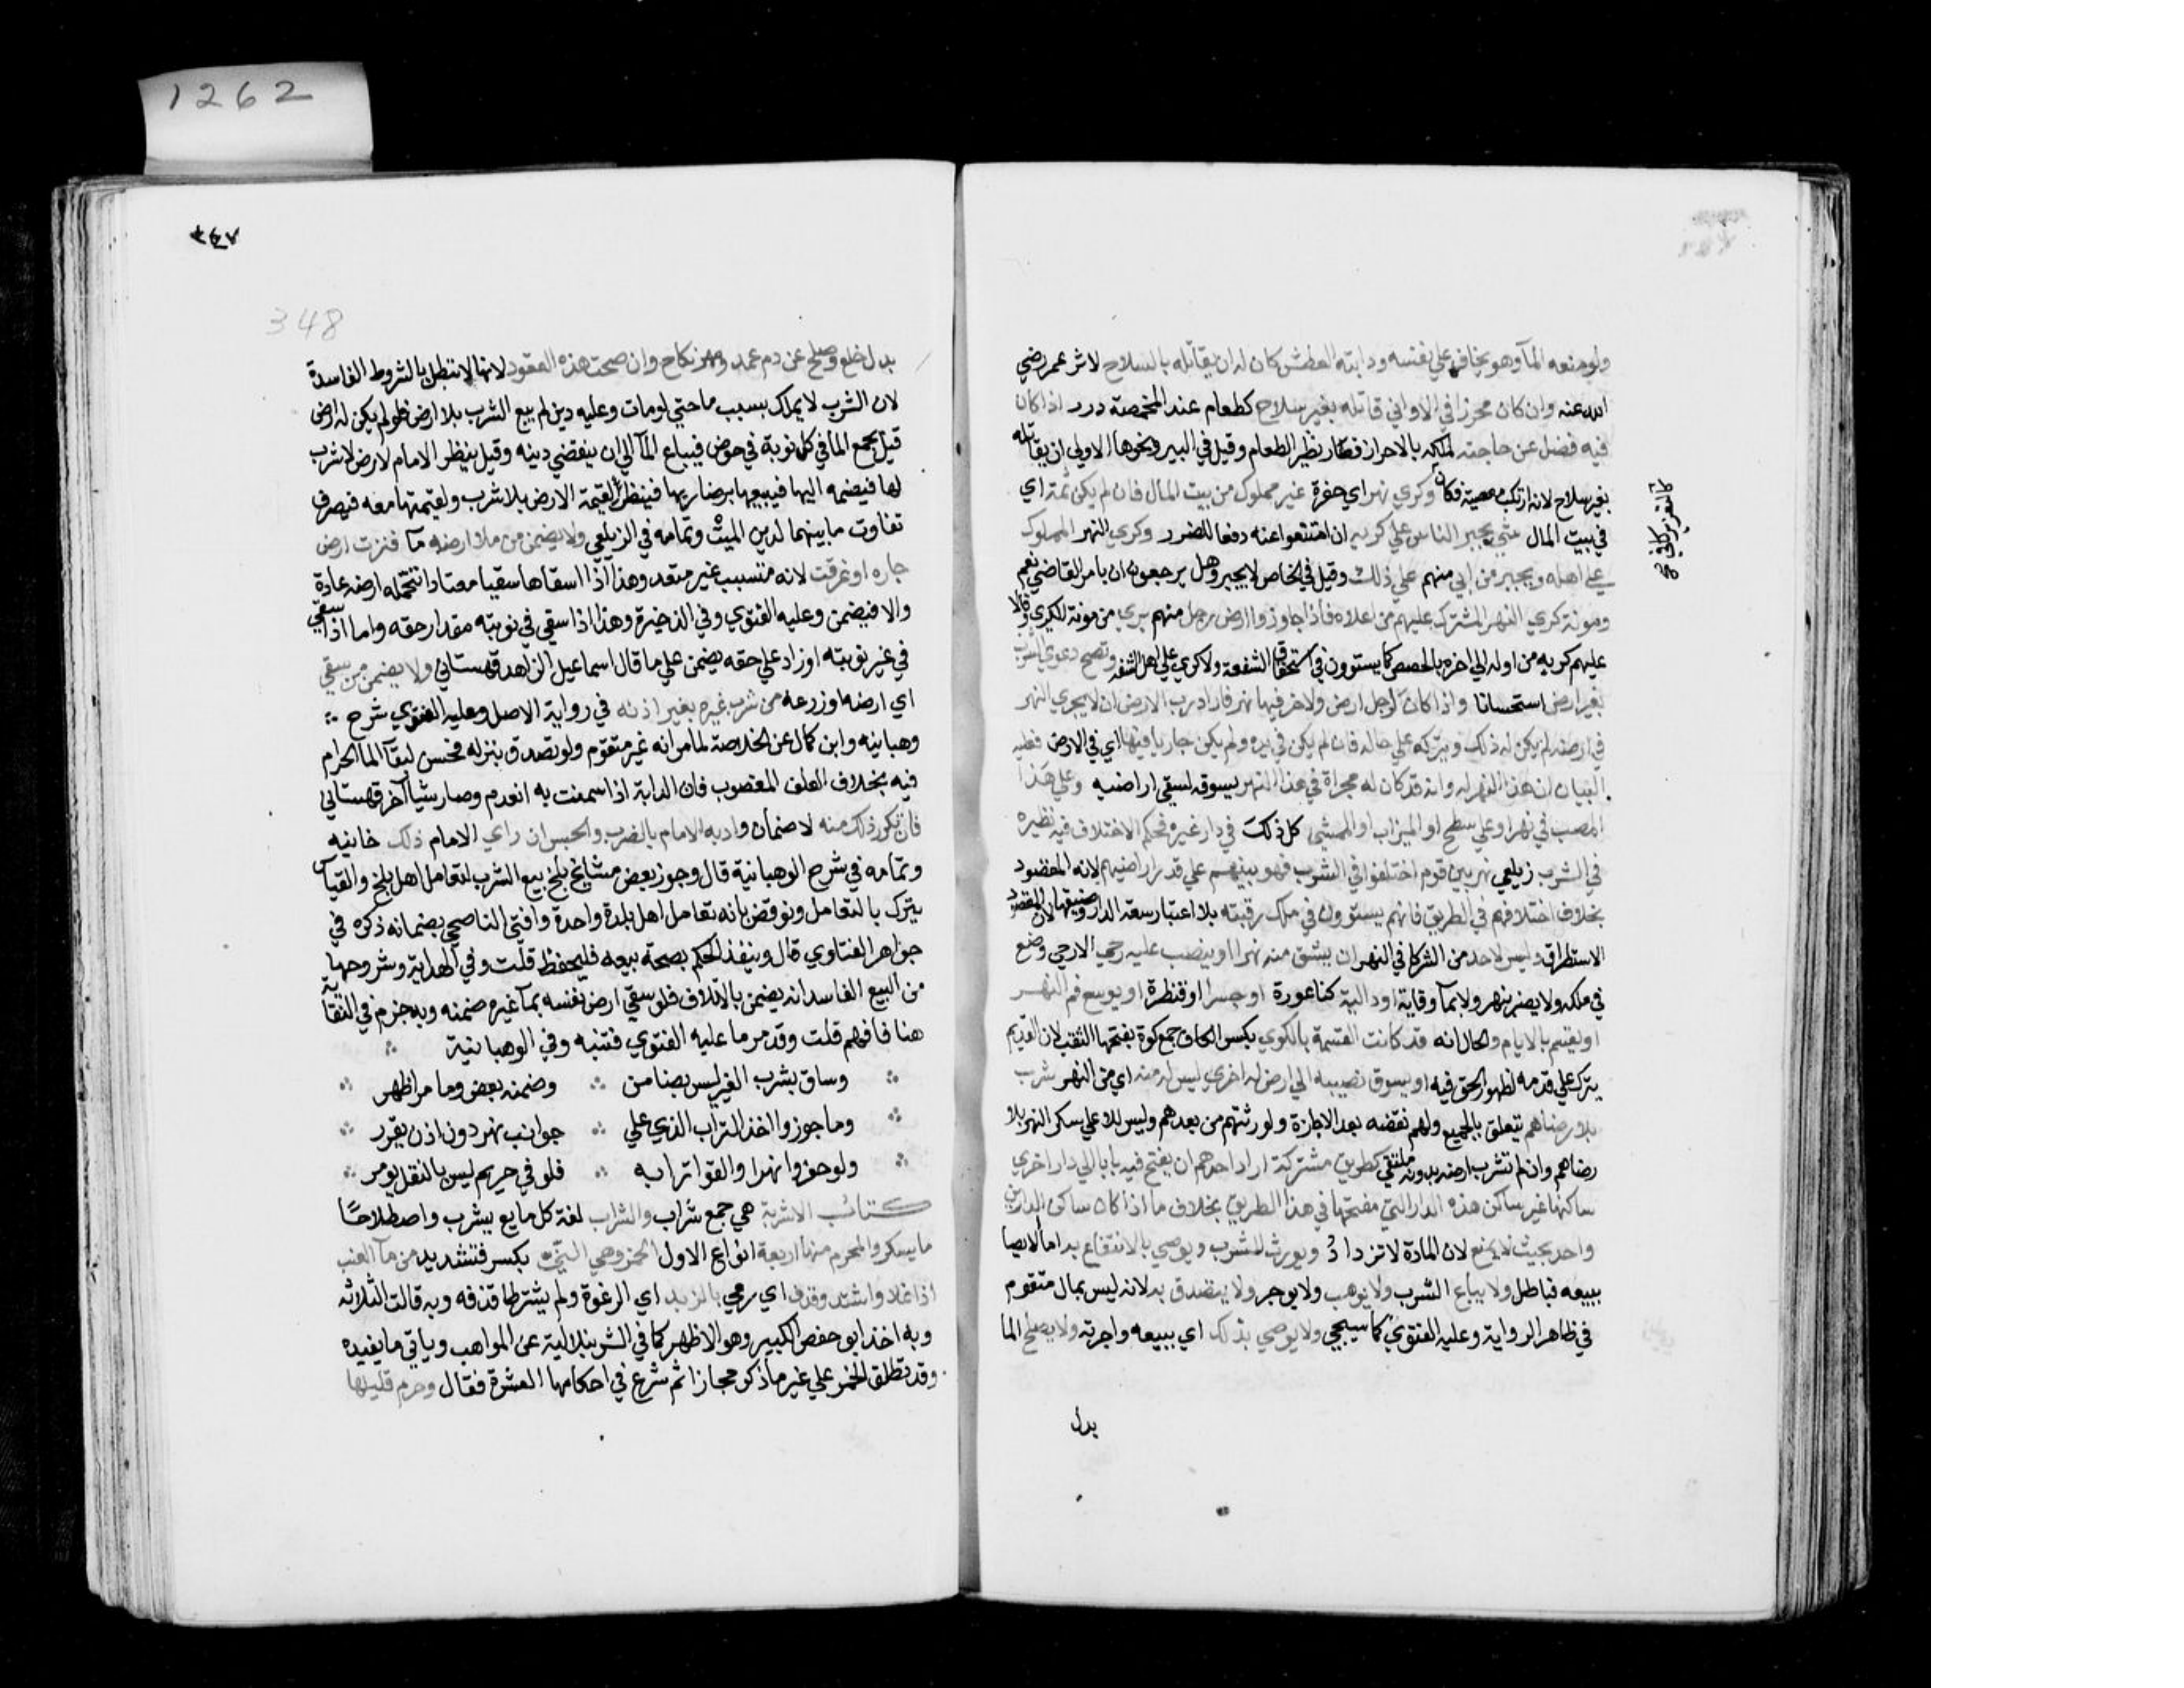 1262
ولو منعه المآ وهو يخاف علي نفسه ودابته العطش كان له ان يقاتله بالسلاح لاثر عمر رضي
الله عنه وان كان محرزا في الاواني قاتله بغير سلاح كطعام عند المخمصة درر اذا كان
فيه فضل عن حاجته لملكه بالاحراز فصار نظير الطعام وقيل في البير ونحوها الاولي ان يقاتله
بغير سلاح لانه ارتكب معصية فكان وكري نهر اي حفرة غير مملوك من بيت المال فان لم يكن ثمة اي
كالتعزير كافي
في بيت المال شي يجبر الناس علي كريه ان امتنعوا عنه دفعا للضرر وكري النهر المملوك
علي اهله ويجبر من ابي منهم علي ذلك وقيل في الخاص لا يجبر وهل يرجعون ان بامر القاضي نعم
ومونة كري النهر المشترك عليهم من اعلاه فاذا جاوزوا ارض رجل منهم بري من مونة الكري وقالا
عليهم كريه من اوله الي اخره بالحصص كما يستوون في استحقاق الشفعة ولا كري علي اهل الشفه وتصح دعوي الشرب
بغير ارض استحسانا واذا كان لرجل ارض ولاخر فيها نهر فاراد رب الارض ان لا يجري النهر
في ارضه لم يكن له ذلك ويتركه علي حاله فان لم يكن في يده ولم يكن جاريا فيها اي في الارض فعليه
البيان ان هذا النهر له وانه قد كان له مجراة في هذا النهر يسوقه لسقي اراضيه وعلي هذا
المصب في نهر او علي سطح او الميزاب او الممشي كل ذلك في دار غيره فحكم الاختلاف فيه نظيره
في الشرب زيلعي نهر بين قوم اختلفوا في الشرب فهو بينهم علي قدر اراضيهم لانه المقصود
بخلاف اختلافهم في الطريق فانهم يستوون في ملك رقبته بلا اعتبار سعة الدار وضيقها لان المقصود
الاستطراق وليس لاحد من الشركا في النهر ان يشق منه نهرا او ينصب عليه رحي الا رحي وضع
في ملكه ولا يضر بنهر ولا بمآ وقاية او دالية كناعورة او جسرا او قنطرة او يوسع فم النهر
او يقسم بالايام والحال انه قد كانت القسمة بالكوي بكسر الكاف جمع كوة بفتحها الثقب لان القديم
يترك علي قدمه لظهور الحق فيه او يسوق نصيبه الي ارض له اخري ليس له منه اي من النهر شرب
بلا رضاهم يتعلق بالجميع ولهم نقضه بعد الاجازة ولورثتهم من بعدهم وليس للاعلي سكر النهر بلا
رضاهم وان لم تشرب ارضه بدونه ملتقي كطريق مشتركة اراد احدهم ان يفتح فيه بابا الي دار اخري
ساكنها غير ساكن هذه الدار التي مفتحها في هذا الطريق بخلاف ما اذا كان ساكن الدارين
واحد بحيث لا يمنع لان المادة لا تزداد ويورث الشرب ويوصي بالانتفاع به اما الايصا
ببيعه فباطل ولا يباع الشرب ولا يوهب ولا يوجر ولا يتصدق به لانه ليس بمال متقوم
في ظاهر الرواية وعليه الفتوي كما سيجي ولا يوصي بذلك اي ببيعه واجرته ولا يصلح الما
بدل
٣٤٧
348
بدل خلع وصلح عن دم عمد ومهر نكاح وان صحت هذه العقود لانها لا تبطل بالشروط الفاسدة
لان الشرب لا يملك بسبب ما حتي لو مات وعليه دين لم يبع الشرب بلا ارض فلو لم يكن له ارض
قيل يجمع الما في كل نوبة في حوض فيباع المآ الي ان ينقضي دينه وقيل ينظر الامام لارض لا شرب
لها فيضمه اليها فيبيعها برضا ربها فينظر لقيمة الارض بلا شرب ولقيمتها معه فيصرف
تفاوت ما بينهما لدين الميت وتمامه في الزيلعي ولا يضمن من ملا ارضه مآ فنزت ارض
جاره او غرقت لانه متسبب غير متعد وهذا اذا سقاها سقيا معتادا تتحمله ارضه عادة
والا فيضمن وعليه الفتوي وفي الذخيرة وهذا اذا سقي في نوبته مقدار حقه واما اذا سقي
في غير نوبته او زاد علي حقه يضمن علي ما قال اسماعيل الزاهد قهستاني ولا يضمن من سقي
اي ارضه او زرعه من شرب غيره بغير اذنه في رواية الاصل وعليه الفتوي شرح
وهبانيه وابن كمال عن الخلاصة لما مر انه غير متقوم ولو تصدق بنزله فحسن لبقآ المآ الحرام
فيه بخلاف العلف المغصوب فان الدابة اذا سمنت به انعدم وصار شيآ آخر قهستاني
فان تكرر ذلك منه لا ضمان وادبه الامام بالضرب والحبس ان راي الامام ذلك خانيه
وتمامه في شرح الوهبانية قال وجوز بعض مشايخ بلخ بيع الشرب لتعامل اهل بلخ والقياس
يترك بالتعامل ونوقض بانه تعامل اهل بلدة واحدة وافتي الناصحي بضمانه ذكره في
جواهر الفتاوي قال وينفذ الحكم بصحة بيعه فليحفظ قلت وفي الهداية وشروحها
من البيع الفاسد انه يضمن بالاتلاف فلو سقي ارض نفسه بمآ غيره ضمنه وبه جزم في النقاية
هنا فافهم قلت وقد مر ما عليه الفتوي فتنبه وفي الوهبانية
وساق بشرب الغير ليس بضامن وضمنه بعض وما مر اظهر
وما جوزوا اخذ التراب الذي علي جوانب نهر دون اذن يقرر
ولو حفروا نهرا والقوا ترابه فلو في حريم ليس بالنقل يومر
كتاب الاشربة هي جمع شراب والشراب لغة كل مايع يشرب واصطلاحا
ما يسكر والمحرم منها اربعة انواع الاول الخمر وهي الني بكسر فتشديد من مآ العنب
اذا غلا واشتد وقذف اي رمي بالزبد اي الرغوة ولم يشترطا قذفه وبه قالت الثلاثه
وبه اخذ ابو حفص الكبير وهو الاظهر كما في الشرنبلالية عن المواهب وياتي ما يفيده
وقد تطلق الخمر علي غير ما ذكر مجازا ثم شرع في احكامها العشرة فقال وحرم قليلها